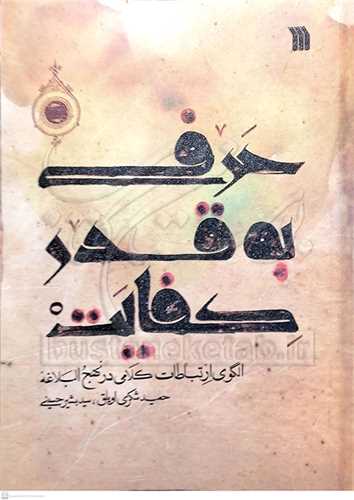 حرفی
به قدر
کفایت
الگوی ارتباطات کلامی در نهج البلاغه
حمید شکری اویلق، سید بشیر حسینی
bustaneketab.ir